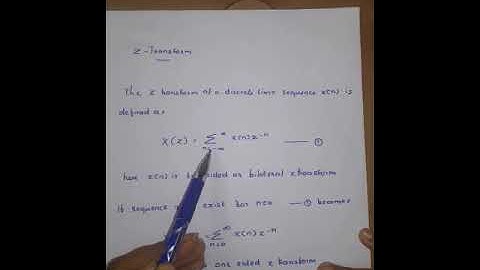 Z-Transform
The Z transform of a discrete time sequence x(n) is
defined as
X(z) = ∑ n=-∞ ^∞ x(n) z^-n —— ①
here x(n) is sided or bilateral z transform
If sequence exist for n≥0 —— ① becomes
= ∑ n=0 ^∞ x(n) z^-n
is one sided z transform